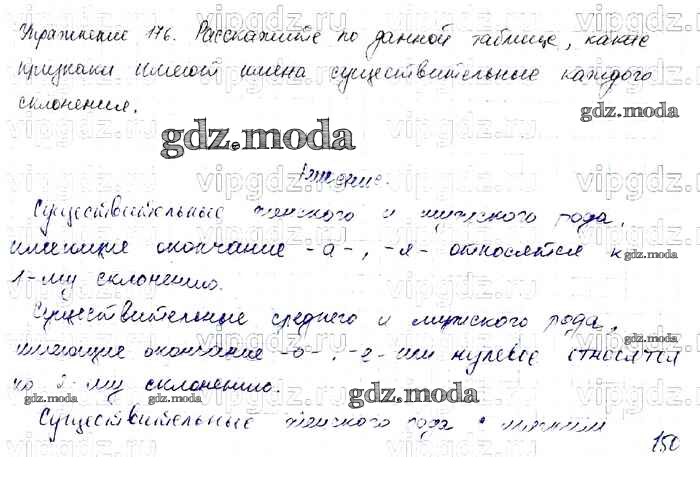 Упражнение 176. Расскажите по данной таблице, какие
признаки имеют имена существительные каждого
склонения.
gdz.moda
gdz.moda
Существительные женского и мужского рода,
имеющие окончание -а-, -я- относятся к
1-му склонению.
gdz.moda
Существительные среднего и мужского рода,
имеющие окончание -о-, -е- или нулевое относятся
ко 2-му склонению.
gdz.moda
gdz.moda
gdz.moda
Существительные женского рода с
150